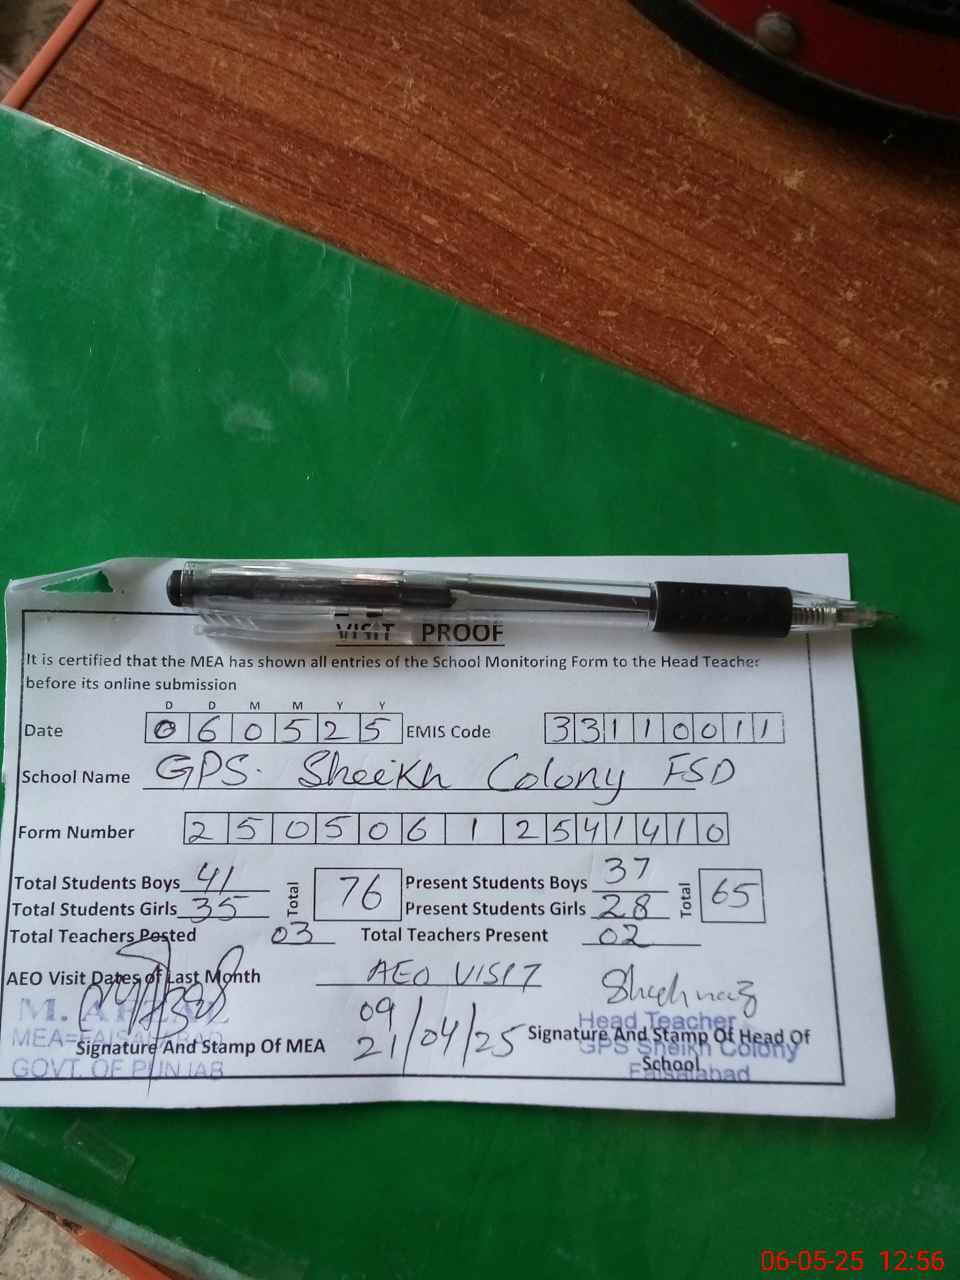 VISIT PROOF
It is certified that the MEA has shown all entries of the School Monitoring Form to the Head Teacher
before its online submission
D D M M Y Y
Date 0 6 0 5 2 5 EMIS Code 3 3 1 1 0 0 1 1
School Name GPS. Sheikh Colony FSD
Form Number 2 5 0 5 0 6 1 2 5 4 1 4 1 0
Total Students Boys 41 Total 76 Present Students Boys 37 Total 65
Total Students Girls 35 Present Students Girls 28
Total Teachers Posted 03 Total Teachers Present 02
AEO Visit Dates of Last Month AEO VISIT Shehnaz
M. AFZAL 09
MEA=FAISALABAD 21/04/25 Head Teacher
Signature And Stamp Of MEA Signature And Stamp Of Head Of
GPS Sheikh Colony
School
GOVT. OF PUNJAB Faisalabad
06-05-25 12:56